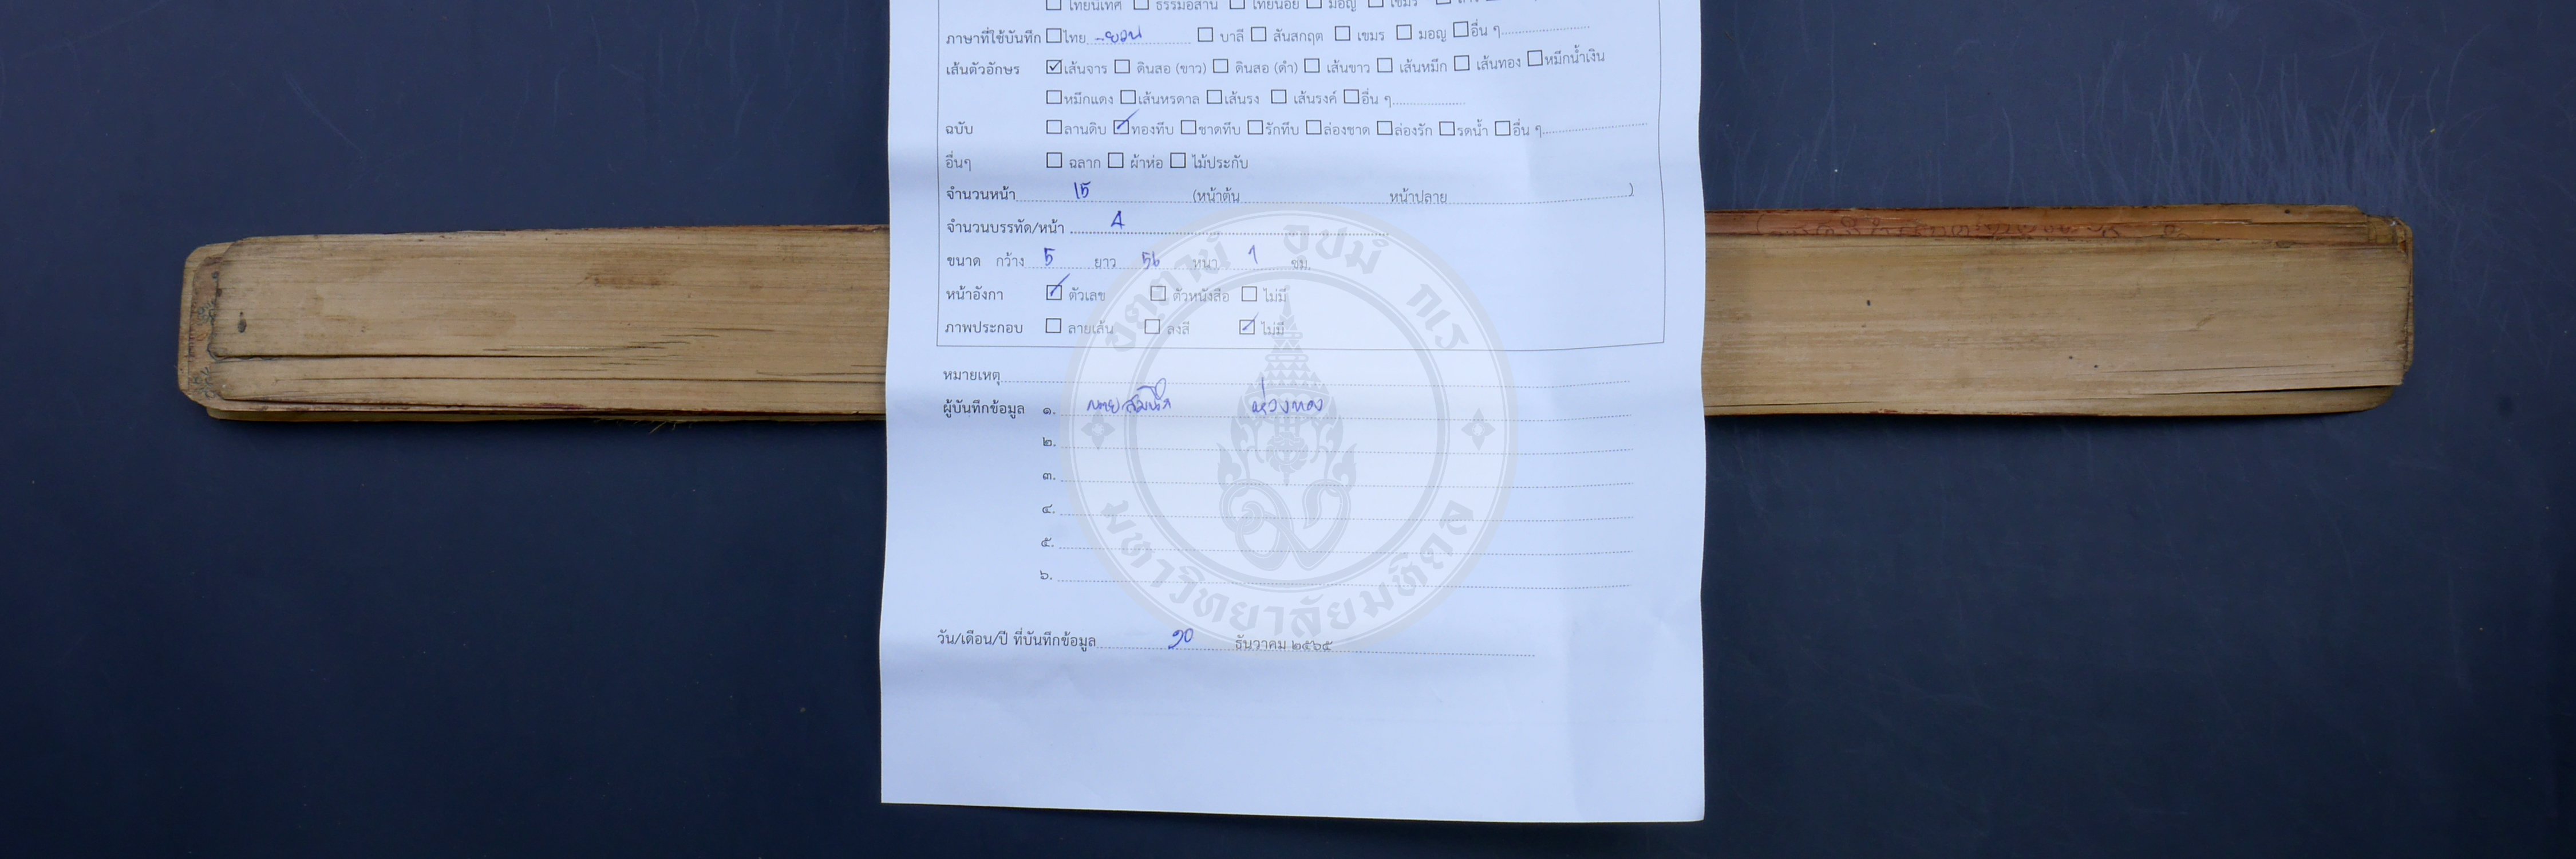 ☐ ไทยนิเทศ ☐ ธรรมอีสาน ☐ ไทยน้อย ☐ มอญ ☐ เขมร
ภาษาที่ใช้บันทึก ☐ไทย - ยวน ☐ บาลี ☐ สันสกฤต ☐ เขมร ☐ มอญ ☐อื่น ๆ
เส้นตัวอักษร ☑เส้นจาร ☐ ดินสอ (ขาว) ☐ ดินสอ (ดำ) ☐ เส้นขาว ☐ เส้นหมึก ☐ เส้นทอง ☐หมึกน้ำเงิน
☐หมึกแดง ☐เส้นหรดาล ☐เส้นรง ☐ เส้นรงค์ ☐อื่น ๆ
ฉบับ ☐ลานดิบ ☑ทองทึบ ☐ชาดทึบ ☐รักทึบ ☐ล่องชาด ☐ล่องรัก ☐รดน้ำ ☐อื่น ๆ
อื่นๆ ☐ ฉลาก ☐ ผ้าห่อ ☐ ไม้ประกับ
จำนวนหน้า 15 (หน้าต้น หน้าปลาย )
จำนวนบรรทัด/หน้า 4
ขนาด กว้าง 5 ยาว 56 หนา 1 ซม.
หน้าอังกา ☑ ตัวเลข ☐ ตัวหนังสือ ☐ ไม่มี
ภาพประกอบ ☐ ลายเส้น ☐ ลงสี ☑ ไม่มี
หมายเหตุ
ผู้บันทึกข้อมูล ๑. นาย ห่วงทอง
๒.
๓.
๔.
๕.
๖.
วัน/เดือน/ปี ที่บันทึกข้อมูล ๑๐ ธันวาคม ๒๕๖๕
อตฺตานํ อุปมํ กเร
มหาวิทยาลัยมหิดล